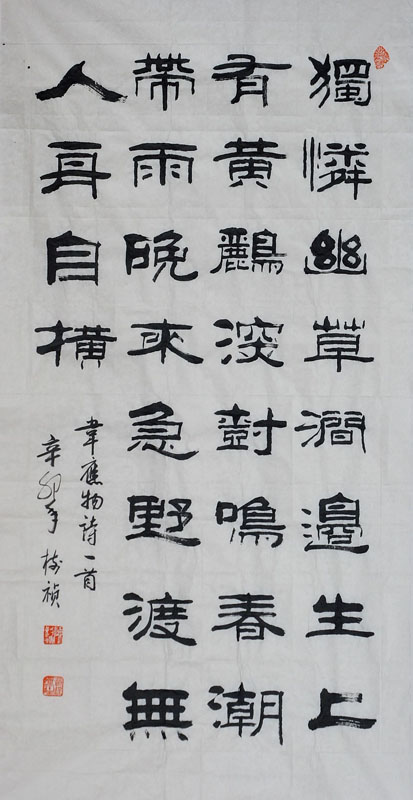 獨憐幽草澗邊生上
有黃鸝深尌鳴春潮
帶雨晚來急野渡無
人舟自橫
韋應物詩一首
辛卯年